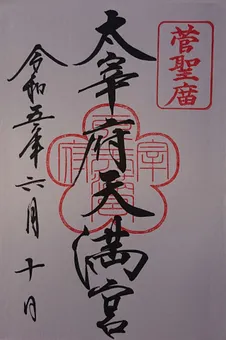 菅聖庿
太宰府天満宮
令和五年六月十日